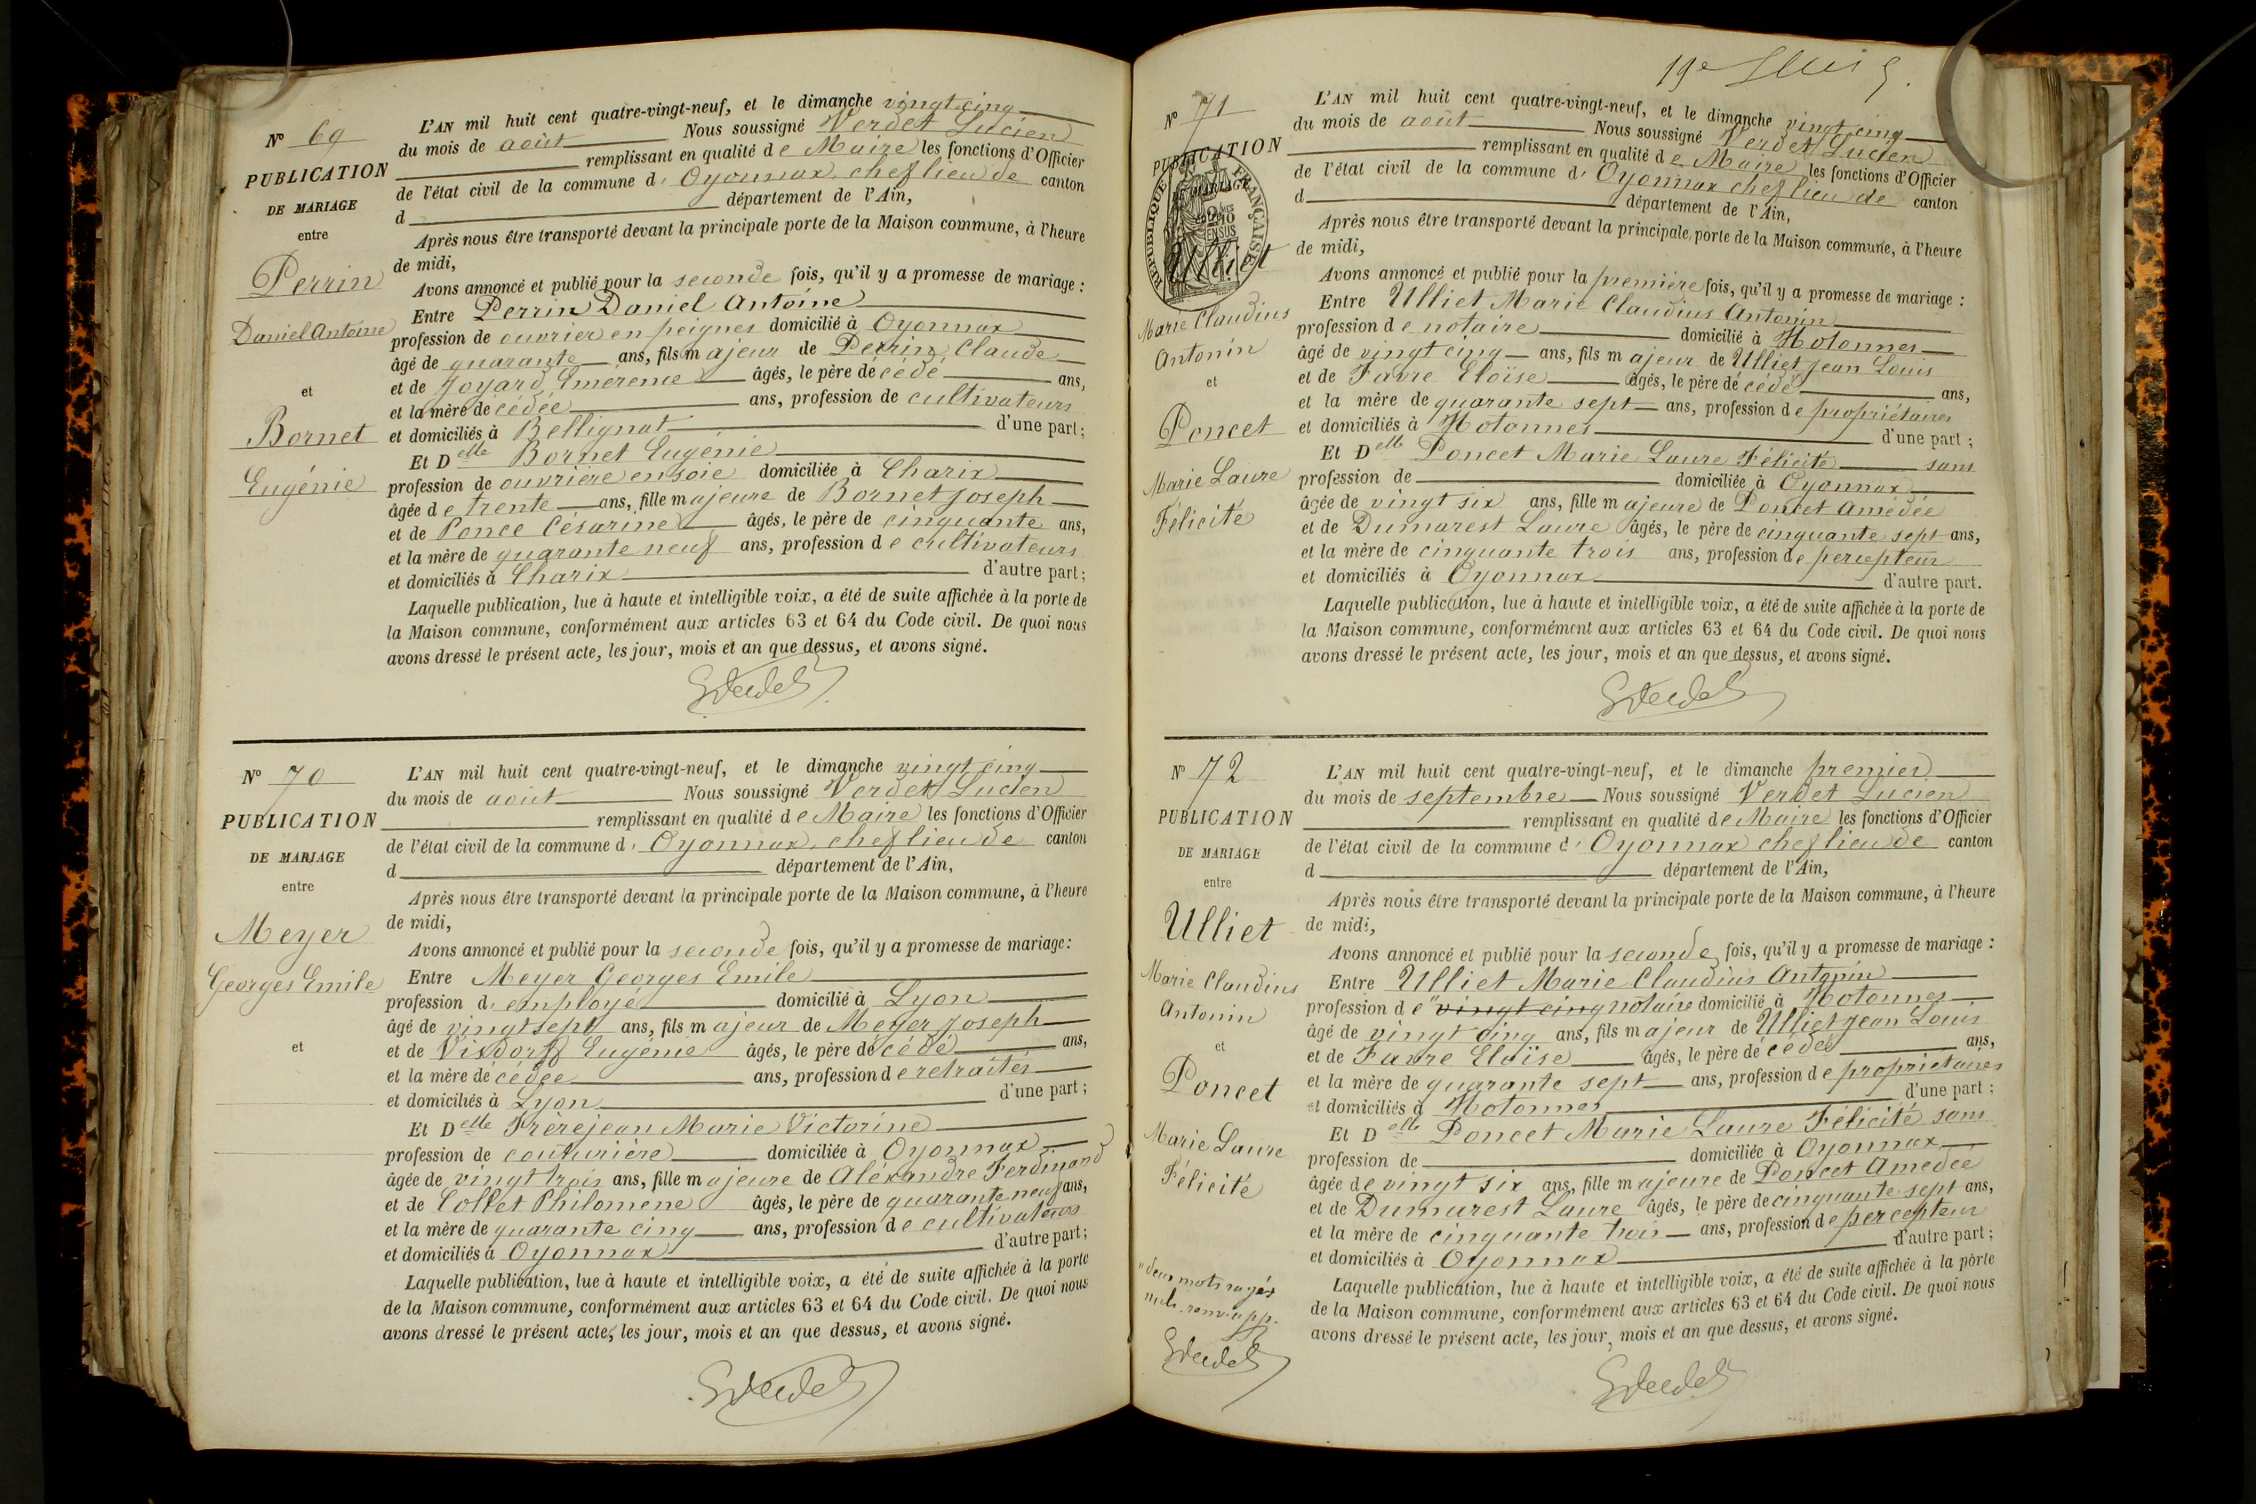 Nº 69
PUBLICATION
DE MARIAGE
entre
Perrin
Daniel Antoine
et
Bornet
Eugénie
L'AN mil huit cent quatre-vingt-neuf, et le dimanche vingt cinq
du mois de août Nous soussigné Verdet Lucien
remplissant en qualité de Maire les fonctions d'Officier
de l'état civil de la commune d' Oyonnax, chef lieu de canton
d département de l'Ain,
Après nous être transporté devant la principale porte de la Maison commune, à l'heure
de midi,
Avons annoncé et publié pour la seconde fois, qu'il y a promesse de mariage :
Entre Perrin Daniel Antoine
profession de ouvrier en peignes domicilié à Oyonnax
âgé de quarante ans, fils majeur de Perrin Claude
et de Joyard Emérence âgés, le père décédé ans,
et la mère décédée ans, profession de cultivateurs
et domiciliés à Bellignat d'une part ;
Et Delle Bornet Eugénie
profession de ouvrière en soie domiciliée à Charix
âgée de trente ans, fille majeure de Bornet Joseph
et de Ponce Césarine âgés, le père de cinquante ans,
et la mère de quarante neuf ans, profession de cultivateurs
et domiciliés à Charix d'autre part ;
Laquelle publication, lue à haute et intelligible voix, a été de suite affichée à la porte de
la Maison commune, conformément aux articles 63 et 64 du Code civil. De quoi nous
avons dressé le présent acte, les jour, mois et an que dessus, et avons signé.
Nº 70
PUBLICATION
DE MARIAGE
entre
Meyer
Georges Emile
et
L'AN mil huit cent quatre-vingt-neuf, et le dimanche vingt cinq
du mois de août Nous soussigné Verdet Lucien
remplissant en qualité de Maire les fonctions d'Officier
de l'état civil de la commune d' Oyonnax, chef lieu de canton
d département de l'Ain,
Après nous être transporté devant la principale porte de la Maison commune, à l'heure
de midi,
Avons annoncé et publié pour la seconde fois, qu'il y a promesse de mariage :
Entre Meyer Georges Emile
profession d' employé domicilié à Lyon
âgé de vingt sept ans, fils majeur de Meyer Joseph
et de Visdorff Eugénie âgés, le père décédé ans,
et la mère décédée ans, profession de retraités
et domiciliés à Lyon d'une part ;
Et Delle Frèrejean Marie Victorine
profession de couturière domiciliée à Oyonnax
âgée de vingt trois ans, fille majeure de Aléxandre Ferdinand
et de Collet Philomène âgés, le père de quarante neuf ans,
et la mère de quarante cinq ans, profession de cultivateurs
et domiciliés à Oyonnax d'autre part ;
Laquelle publication, lue à haute et intelligible voix, a été de suite affichée à la porte
de la Maison commune, conformément aux articles 63 et 64 du Code civil. De quoi nous
avons dressé le présent acte, les jour, mois et an que dessus, et avons signé.
19e
Nº 71
PUBLICATION
DE MARIAGE
RÉPUBLIQUE FRANÇAISE
Ulliet
Marie Claudius
Antonin
et
Poncet
Marie Laure
Félicité
L'AN mil huit cent quatre-vingt-neuf, et le dimanche vingt cinq
du mois de août Nous soussigné Verdet Lucien
remplissant en qualité de Maire les fonctions d'Officier
de l'état civil de la commune d' Oyonnax chef lieu de canton
d département de l'Ain,
Après nous être transporté devant la principale porte de la Maison commune, à l'heure
de midi,
Avons annoncé et publié pour la première fois, qu'il y a promesse de mariage :
Entre Ulliet Marie Claudius Antonin
profession de notaire domicilié à Hotonnes
âgé de vingt cinq ans, fils majeur de Ulliet Jean Louis
et de Favre Eloïse âgés, le père décédé ans,
et la mère de quarante sept ans, profession de propriétaires
et domiciliés à Hotonnes d'une part ;
Et Delle Poncet Marie Laure Félicité sans
profession de domiciliée à Oyonnax
âgée de vingt six ans, fille majeure de Poncet Amédée
et de Dumarest Laure âgés, le père de cinquante sept ans,
et la mère de cinquante trois ans, profession de percepteur
et domiciliés à Oyonnax d'autre part.
Laquelle publication, lue à haute et intelligible voix, a été de suite affichée à la porte de
la Maison commune, conformément aux articles 63 et 64 du Code civil. De quoi nous
avons dressé le présent acte, les jour, mois et an que dessus, et avons signé.
Nº 72
PUBLICATION
DE MARIAGE
entre
Ulliet
Marie Claudius
Antonin
et
Poncet
Marie Laure
Félicité
deux mots rayés
nuls
L'AN mil huit cent quatre-vingt-neuf, et le dimanche premier
du mois de septembre Nous soussigné Verdet Lucien
remplissant en qualité de Maire les fonctions d'Officier
de l'état civil de la commune d' Oyonnax chef lieu de canton
d département de l'Ain,
Après nous être transporté devant la principale porte de la Maison commune, à l'heure
de midi,
Avons annoncé et publié pour la seconde fois, qu'il y a promesse de mariage :
Entre Ulliet Marie Claudius Antonin
profession de vingt cinq notaire domicilié à Hotonnes
âgé de vingt cinq ans, fils majeur de Ulliet Jean Louis
et de Favre Eloïse âgés, le père décédé ans,
et la mère de quarante sept ans, profession de propriétaires
et domiciliés à Hotonnes d'une part ;
Et Delle Poncet Marie Laure Félicité sans
profession de domiciliée à Oyonnax
âgée de vingt six ans, fille majeure de Poncet Amédée
et de Dumarest Laure âgés, le père de cinquante sept ans,
et la mère de cinquante trois ans, profession de percepteur
et domiciliés à Oyonnax d'autre part ;
Laquelle publication, lue à haute et intelligible voix, a été de suite affichée à la porte
de la Maison commune, conformément aux articles 63 et 64 du Code civil. De quoi nous
avons dressé le présent acte, les jour, mois et an que dessus, et avons signé.